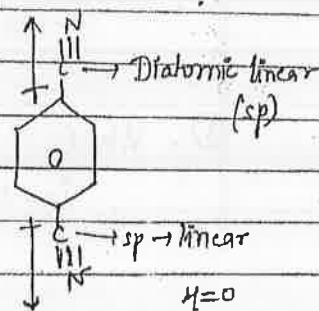 N
C → Diatomic linear
(sp)
C → sp → linear
N
μ=0